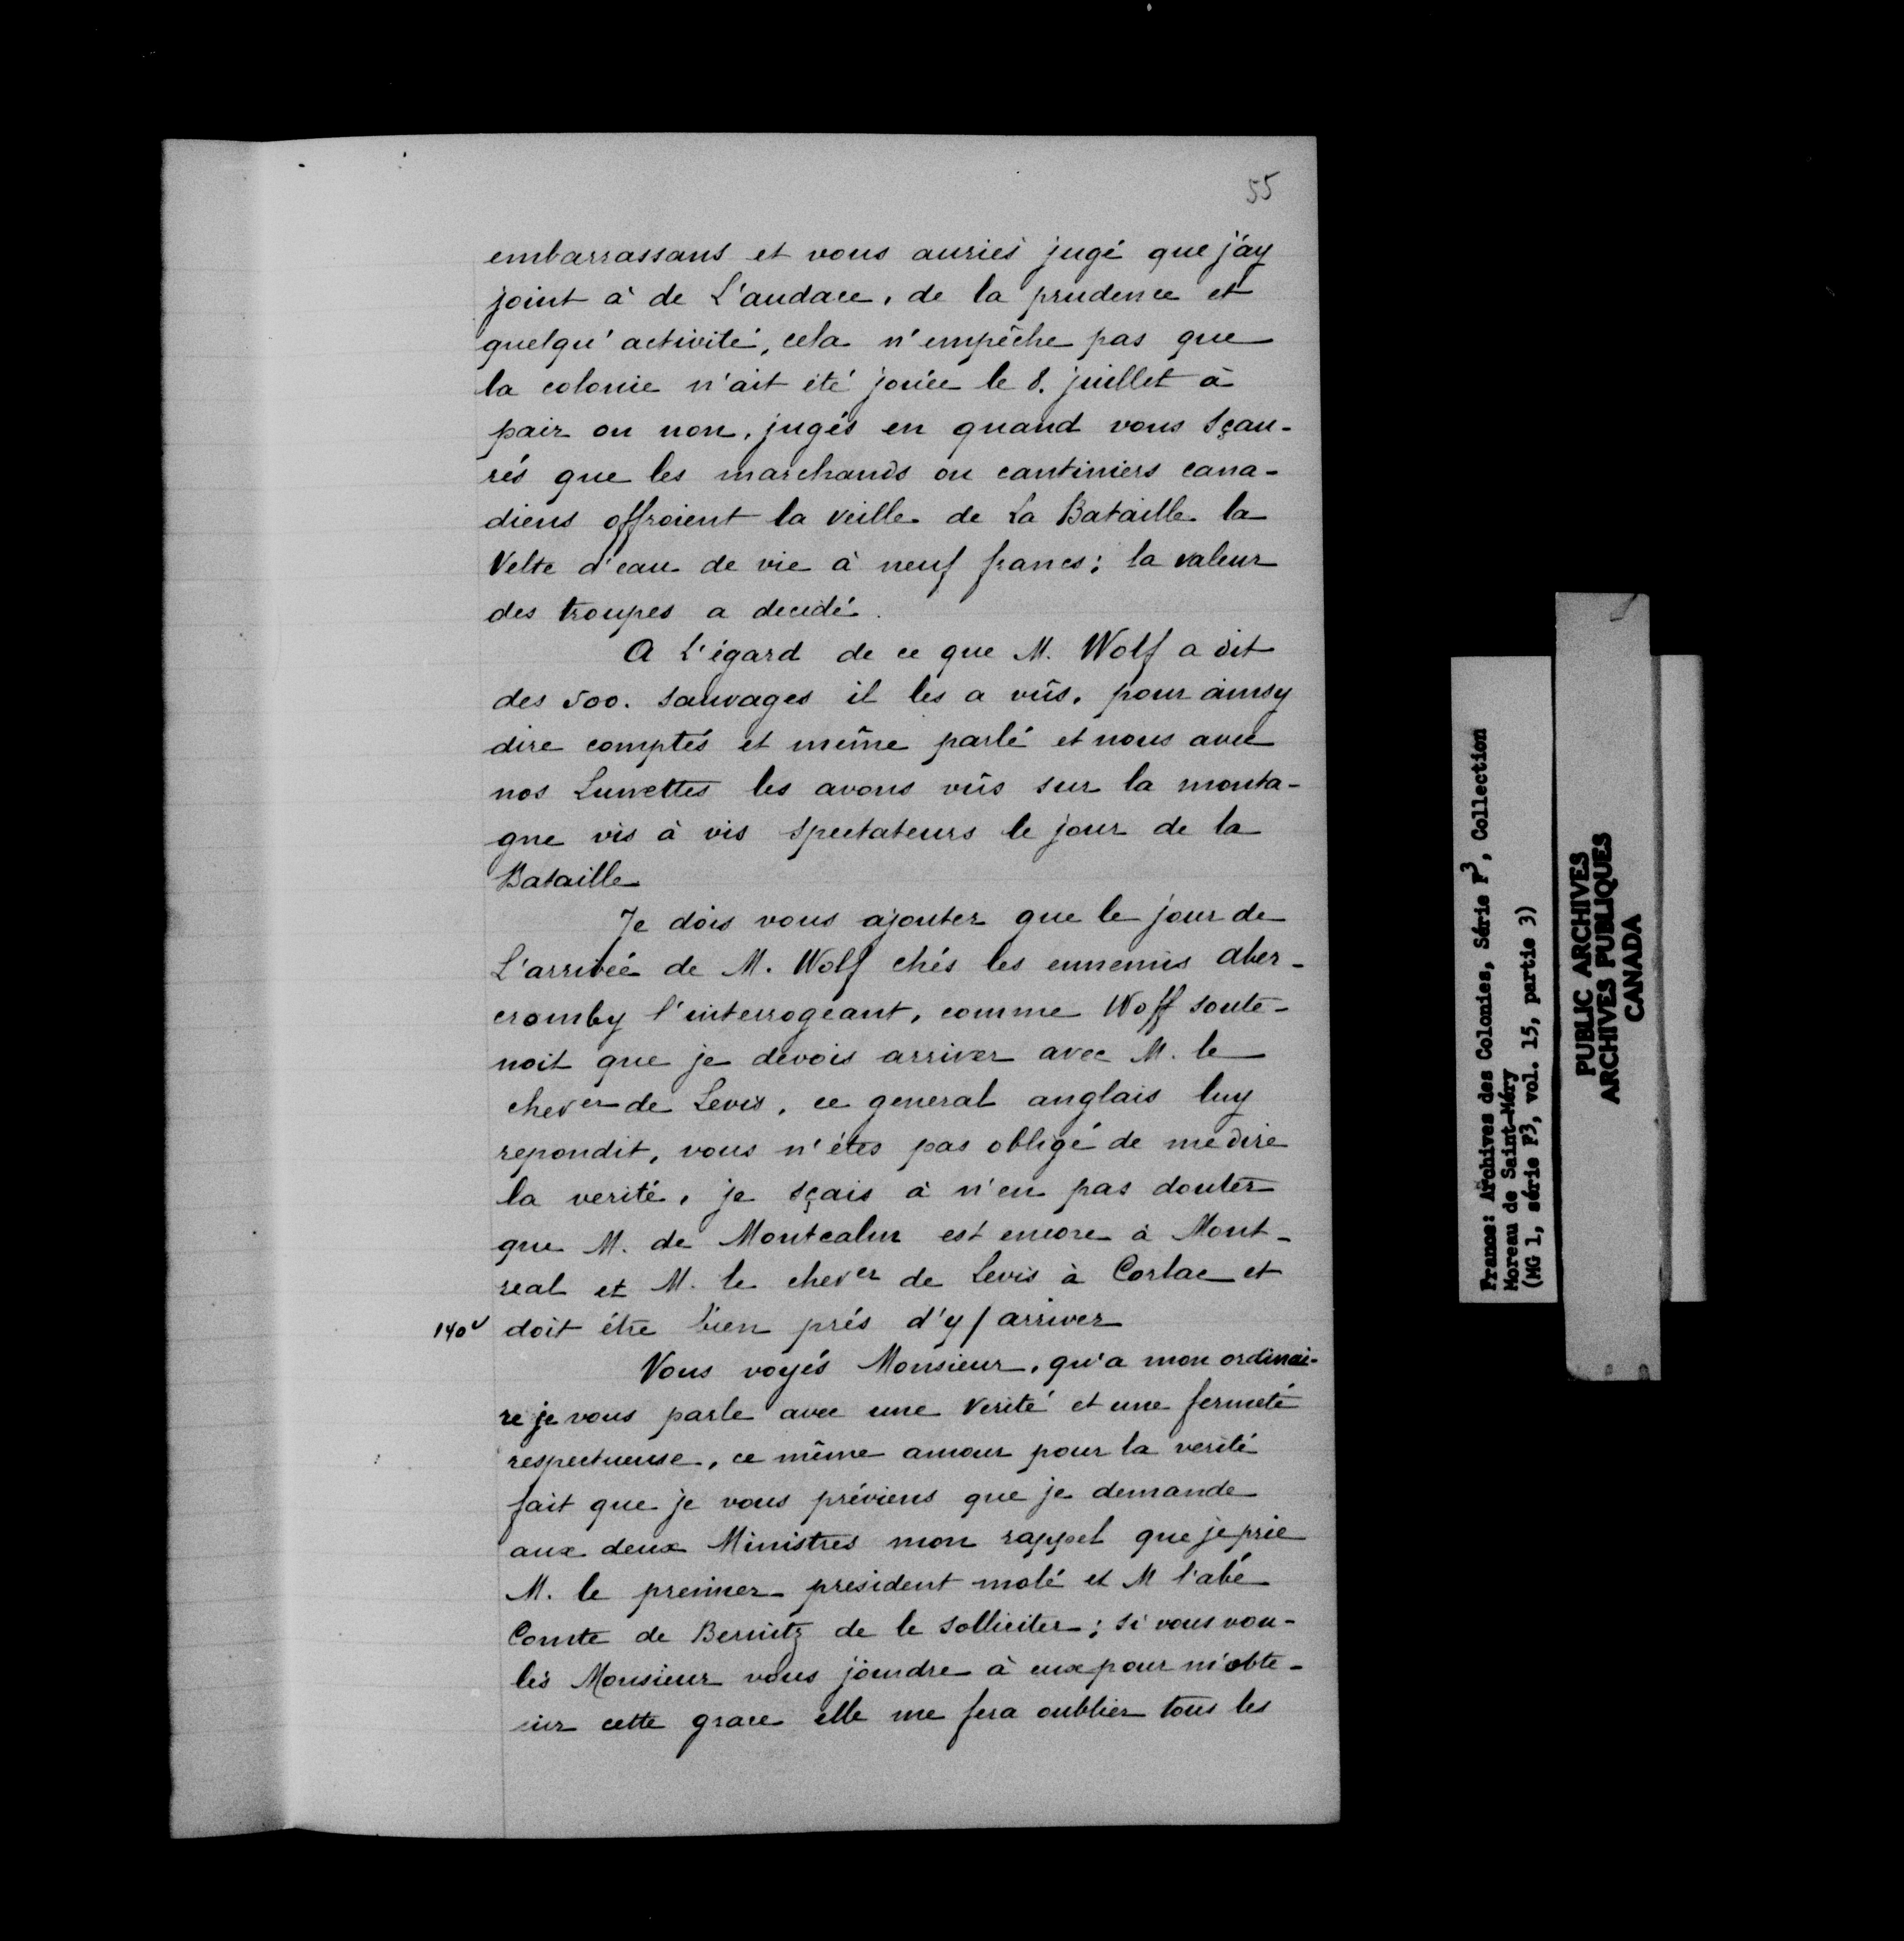 55
embarrassans et vous auriés jugé que j'ay
joint à de L'audace, de la prudence et
quelqu'activité, cela n'empêche pas que
la colonie n'ait été joüée le 8. juillet à
pair ou non, jugés en quand vous sçau-
rés que les marchands ou cantiniers cana-
diens offroient la veille de La Bataille la
Velte d'eau de vie à neuf francs; la valeur
des troupes a decidé.
A L'égard de ce que M. Wolf a dit
des 500. sauvages il les a vûs, pour ainsy
dire comptés et même parlé et nous avec
nos Lunettes les avons vûs sur la monta-
gne vis à vis spectateurs le jour de la
Bataille
Je dois vous ajouter que le jour de
L'arrivée de M. Wolf chés les ennemis Aber-
cromby l'interrogeant, comme Woff soute-
noit que je devois arriver avec M. le
chever de Levis, ce general anglais luy
repondit, vous n'étes pas obligé de me dire
la verité, je sçais à n'en pas douter
que M. de Montcalm est encore à Mont-
real et M. le chever de Levis à Corlac et
140v doit étre bien prés d'y / arriver
Vous voyés Monsieur, qu'a mon ordinai-
re je vous parle avec une verité et une fermeté
respectueuse, ce même amour pour la verité
fait que je vous préviens que je demande
aux deux Ministres mon rappel que je prie
M. le premier president molé et M l'abé
Comte de Bernitz de le solliciter; si vous vou-
lés Monsieur vous joindre à eux pour m'obte-
nir cette grace elle me fera oublier tous les
France: Archives des Colonies, Série F3, Collection
Moreau de Saint-Méry
(MG 1, série F3, vol. 15, partie 3)
PUBLIC ARCHIVES
ARCHIVES PUBLIQUES
CANADA